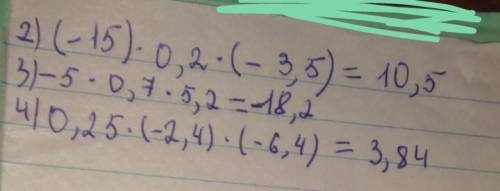 2) (-15) · 0,2 · (- 3,5) = 10,5
3) -5 · 0,7 · 5,2 = -18,2
4) 0,25 · (-2,4) · (-6,4) = 3,84